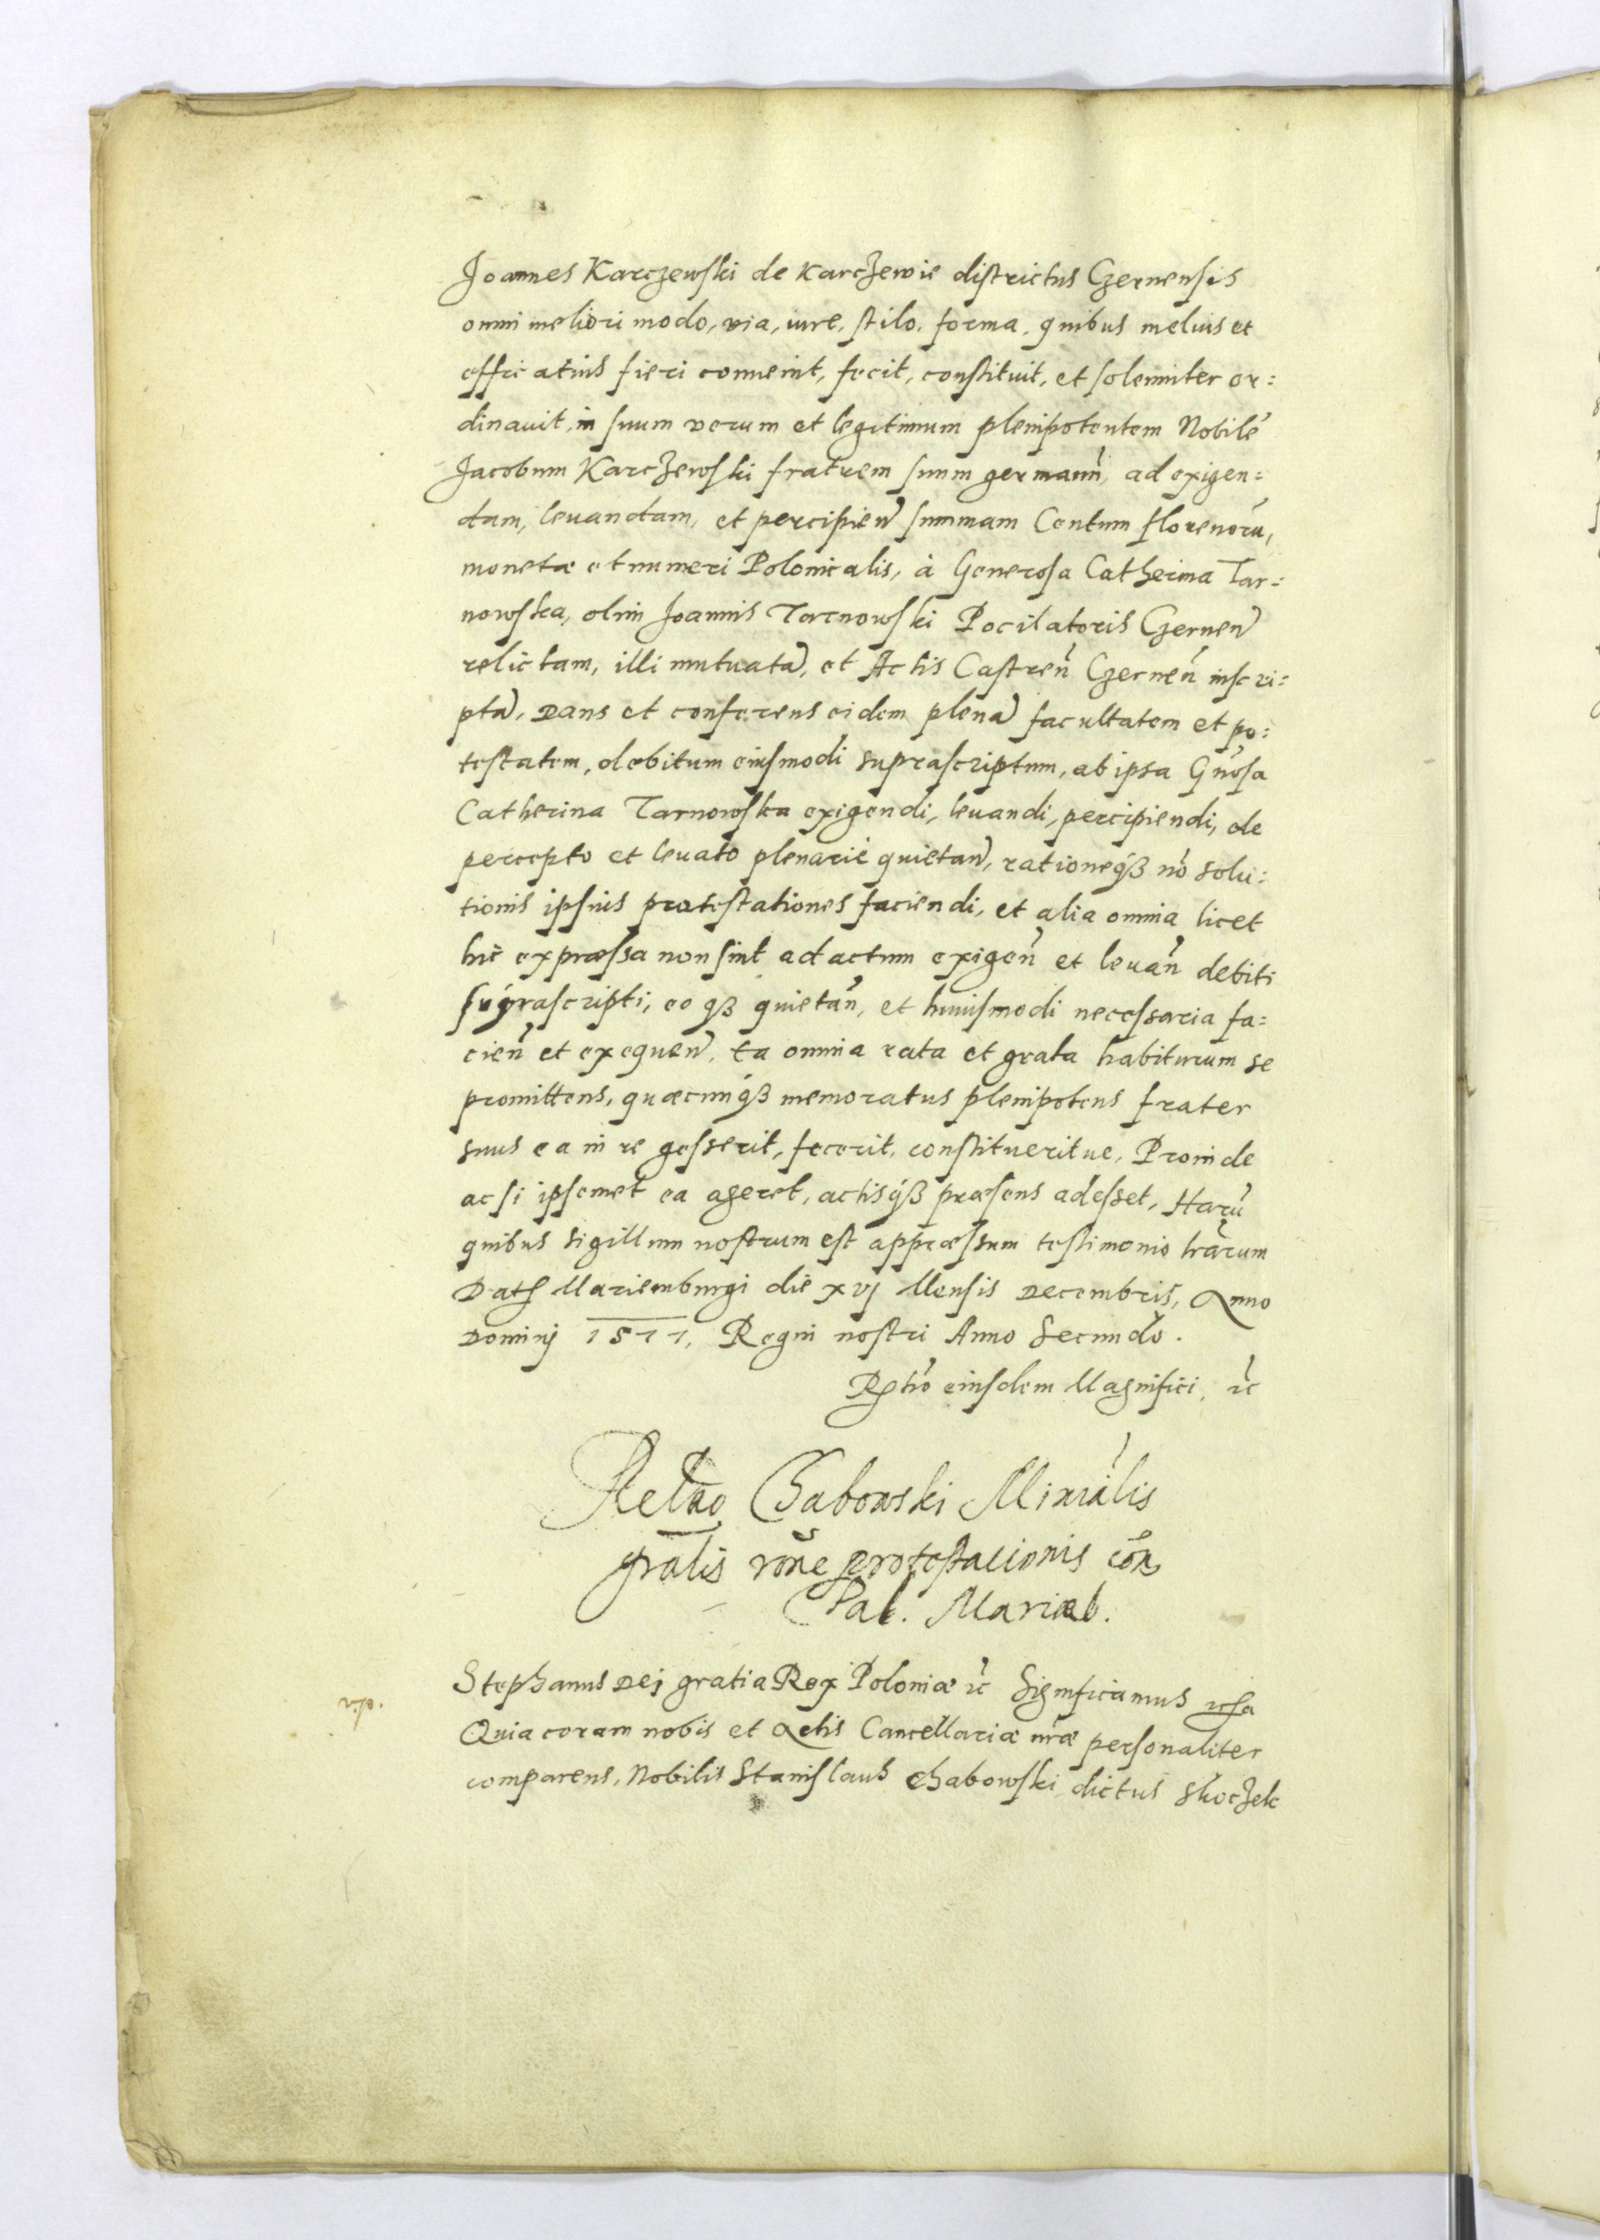 Joannes Karczewski de Karczewie districtus Czernensis
omni meliori modo, via, iure, stilo, forma, quibus melius et
efficatius fieri convenit, fecit, constituit, et solenniter or:
dinavit, in suum verum et legitimum plenipotentem Nobilē
Jacobum Karczewski fratrem suum germanū, ad exigen:
dam, levandam, et percipien̄ summam Centum florenorū,
monetæ et numeri Polonicalis, à Generosa Catherina Tar:
nowska, olim Joannis Tarnowski Pocilatoris Czernen̄
relictam, illi mutuatā, et Actis Castren̄ Czernen̄ inscri:
ptā, Dans et conferens eidem plenā facultatem et po:
testatem, debitum eiusmodi suprascriptum, ab ipsa Gn̄osa
Catherina Tarnowska exigendi, levandi, percipiendi, de
percepto et levato plenariè quietan̄, rationeqȝ nō solu:
tionis ipsius protestationes faciendi, et alia omnia licet
hic expræssa non sint ad actum exigen̄ et levan̄ debiti
suprascripti, eoqȝ quietan̄, et huiusmodi necessaria fa:
cien̄ et exequen̄, ea omnia rata et grata habiturum se
promittens, quæcunqȝ memoratus plenipotens frater
suus ea in re gesserit, fecerit, constitueritve, Proinde
ac si ipsemet ea ageret, actisqȝ præsens adesset, Harū
quibus sigillum nostrum est appræssum testimonio lrārum
Dat Mariemburgi die xvj Mensis Decembris, Anno
Dominj 1577, Regni nostri Anno Secundo.
Rtiō eiusdem Magnifici, ic̄
Chabowski
grālis rōne protestationis cōn
Pal. Mariæb.
Stephanus Dej gratia Rex Poloniæ ic̄ Significamus
Quia coram nobis et Actis Cancellariæ nr̄æ personaliter
comparens, Nobilis Stanislaus Chabowski dictus Skoczek